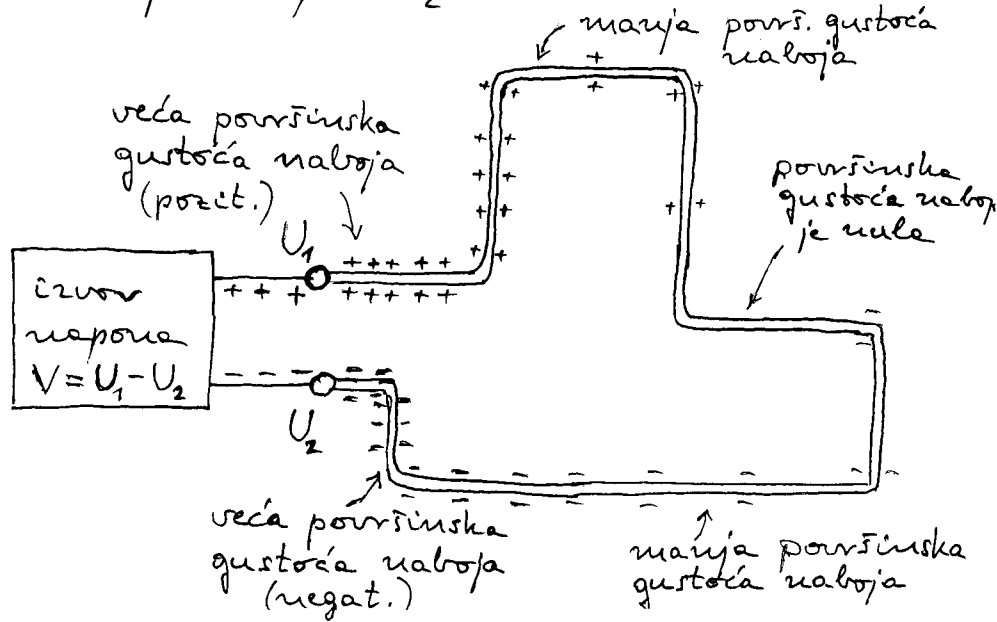 manja površ. gustoća
naboja
veća površinska
gustoća naboja
(pozit.)
površinska
gustoća naboj
je nula
U₁
izvor
napona
V = U₁ - U₂
U₂
veća površinska
gustoća naboja
(negat.)
manja površinska
gustoća naboja